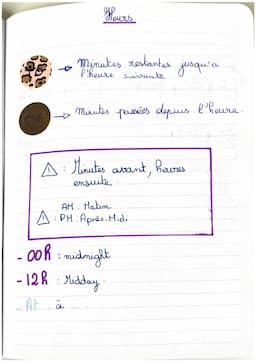 Heurs
→ Minutes restantes jusqu'a
l'heure suivante
→ Minutes passées depuis l'heure.
⚠ : Minutes avant, heures
ensuite.
AM : Matin
⚠ : PM : Après-Midi
- 00h : midnight
- 12h : Midday.
- At : à ....